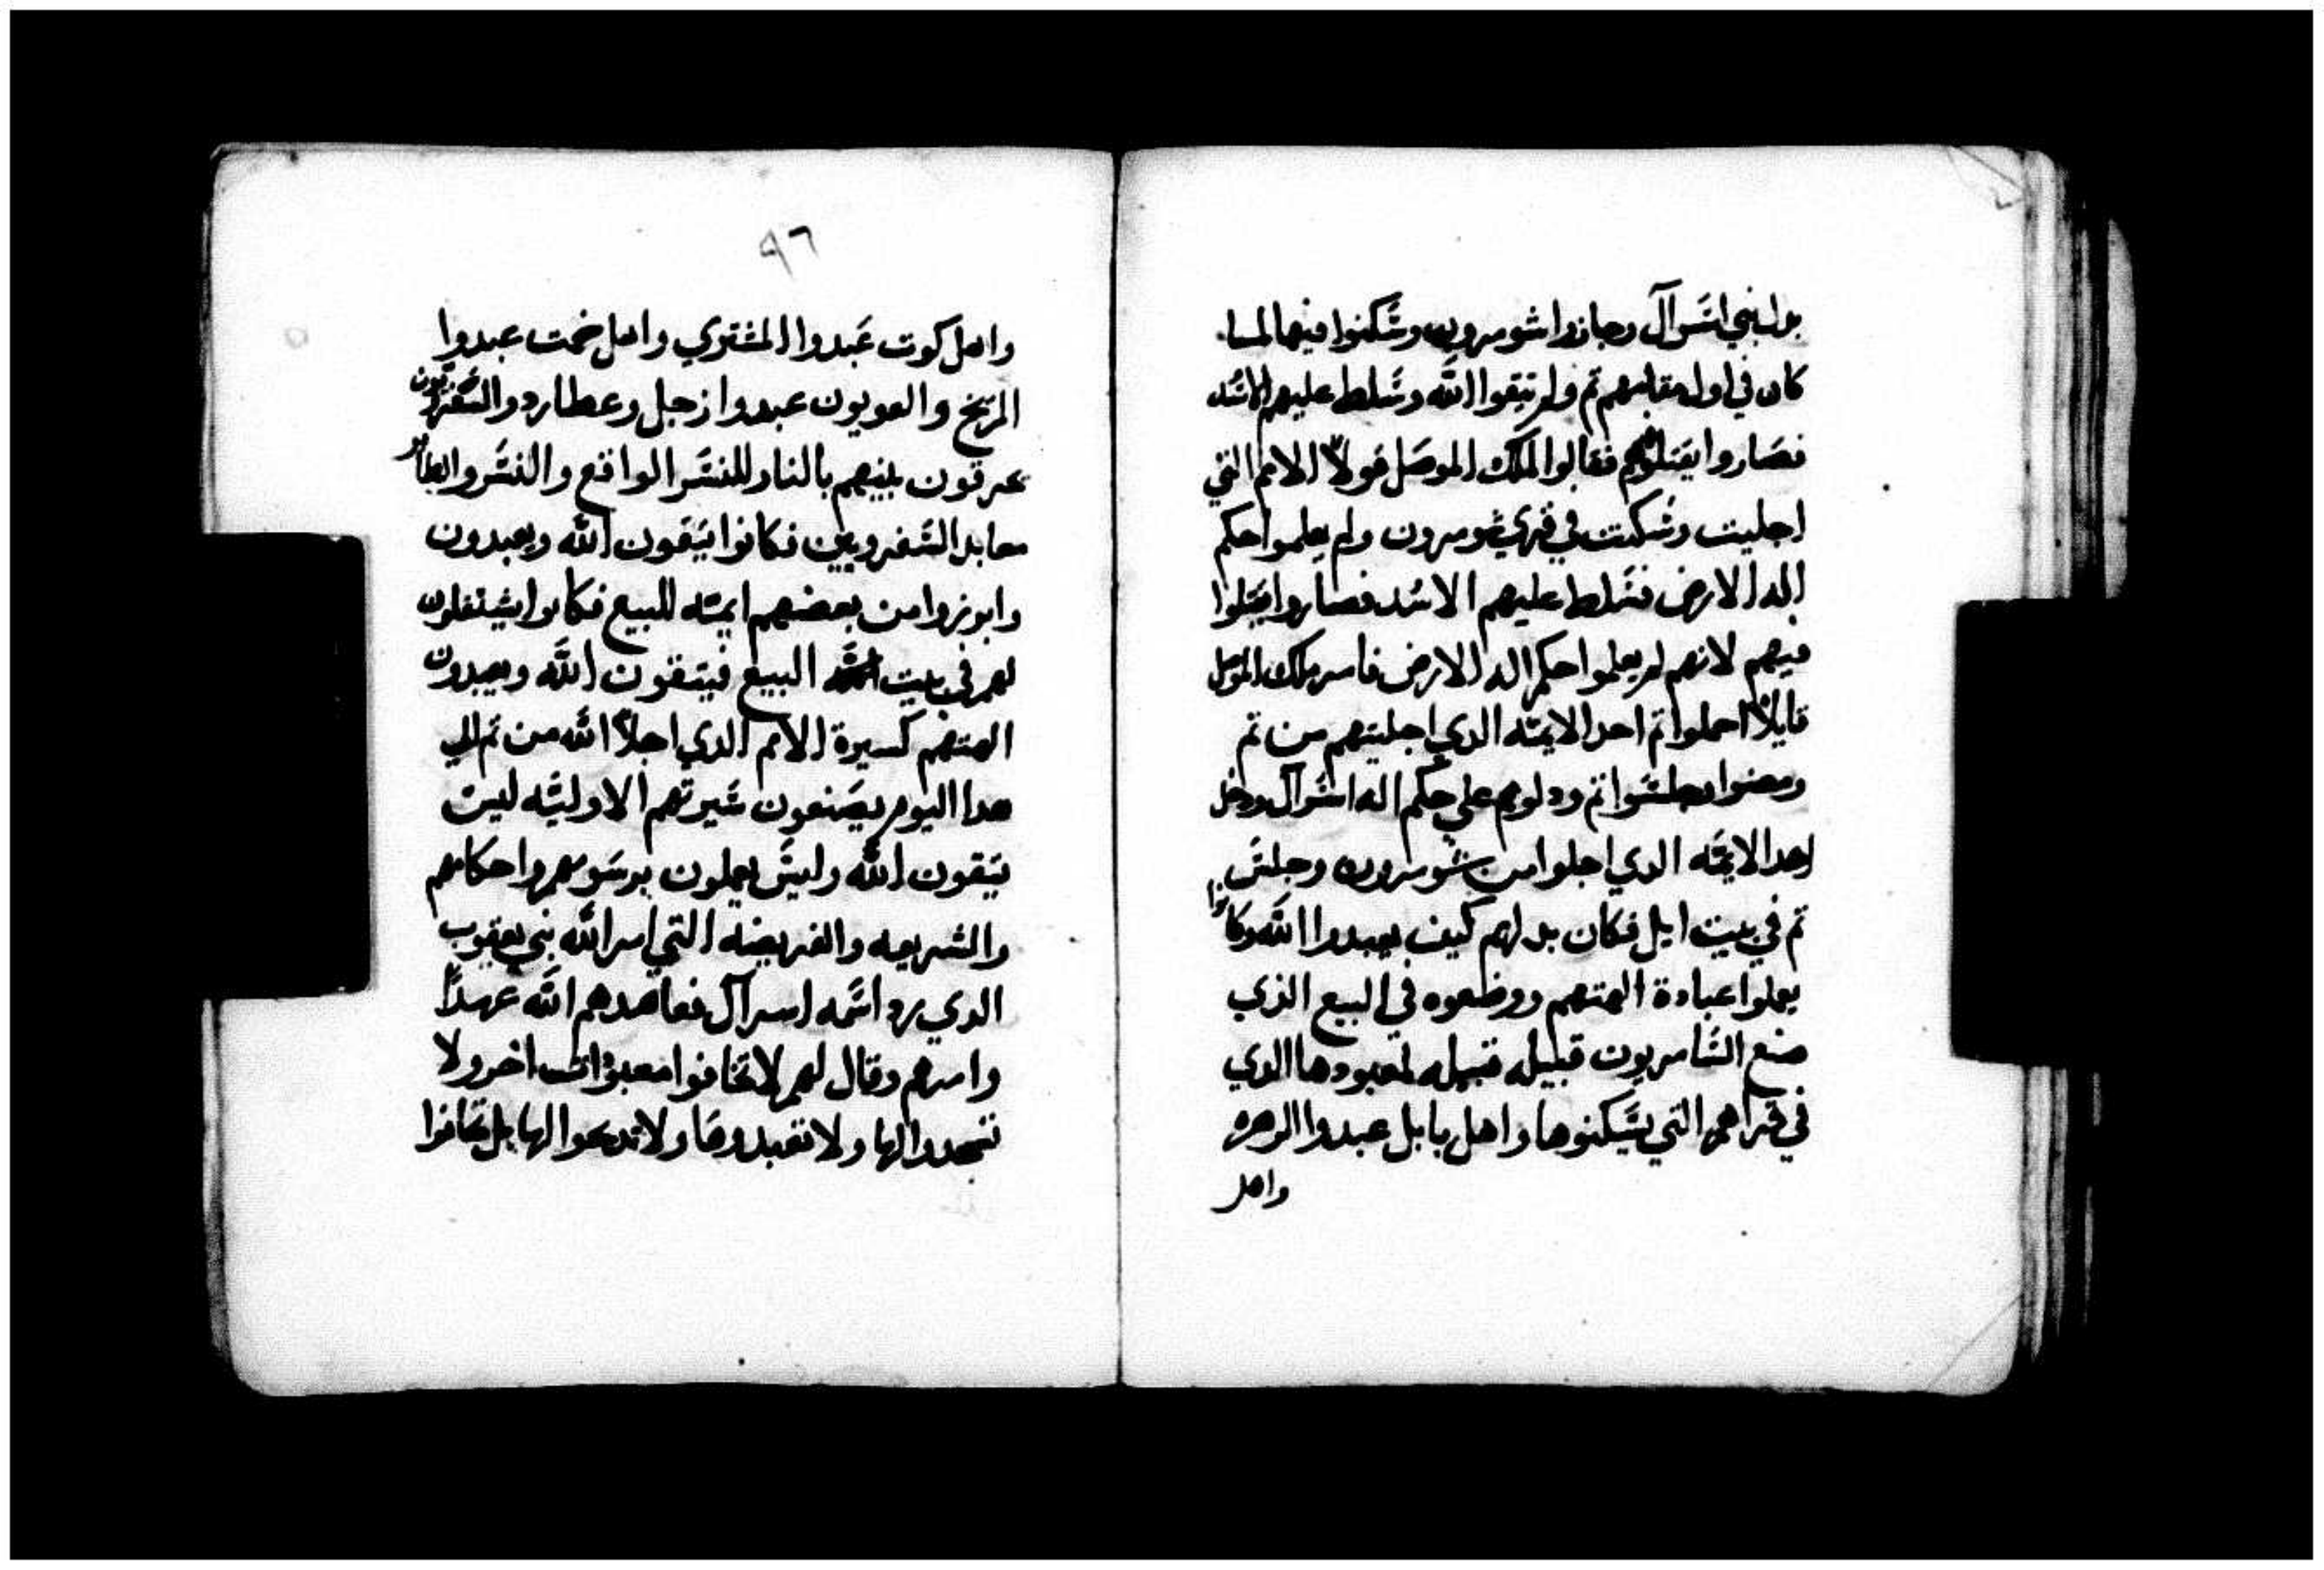 بدل بني اسرآل وحازوا شومرون وسكنوا فيها لما
كان في اول مقامهم تم ولم يتقوا الله وسلط عليهم الاسد
فصاروا يقتلوهم فقالوا لملك الموصل هولآ الامم التي
اجليت وسكنت في قري شومرون ولم يعلموا حكم
اله الارض فسلط عليهم الاسد فصاروا يقتلوا
فيهم لانهم لم يعلموا حكم اله الارض فامر ملك الموصل
قايلاً احملوا تم احد الايمّه الدي اجليتهم من تم
ومضوا وجلسوا تم ودلوهم علي حكم اله اسرآل ودخل
احد الايمّه الدي اجلوا من شومرون وجلس
تم في بيت ايل فكان يدلهم كيف يعبدوا الله وكانوا
يعملوا عبادة الهتهم ووضعوه في البيع الذي
صنع السامريون قبيله قبيله لمعبودها الدي
في قراهم التي يسكنوها واهل بابل عبدوا الزهره
واهل
٩٦
واهل كوت عبدوا المشتري واهل خمت عبدوا
المريخ والعويون عبدوا زحل وعطارد والسفرويون
يحرقون بنيهم بالنار للنسر الواقع والنسر والطاير
معابد السفرويين فكانوا يتقون الله ويعبدون
وابرزوا من بعضهم ايمّه للبيع فكانوا يشتغلون
لهم في بيت البيع فيتقون الله ويعبدون
الهتهم كسيرة الامم الدي اجلآ الله من تم الي
هدا اليوم يصنعون سيرتهم الاوليّه ليس
يتقون الله وليس يعملون برسومهم واحكامهم
والشريعه والفريضه التي امر الله بني يعقوب
الدي رد اسمه اسرآل فعاهدهم الله عهداً
وامرهم وقال لهم لا تخافوا معبودات اخر ولا
تسجدوا لها ولا تعبدوها ولا تدبحوا لها بل تخافوا